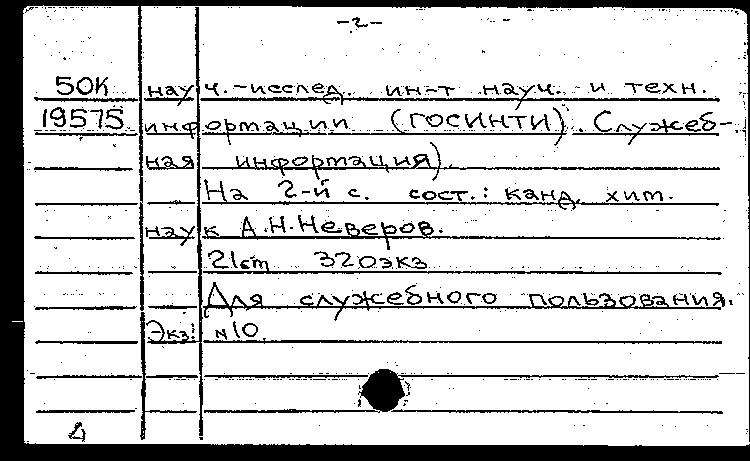 -2-
50К науч.-исслед. ин-т науч. и техн.
19575 информации (ГОСИНТИ). Служеб-
ная информация).
На 2-й с. сост.: канд. хим.
наук А.Н.Неверов.
21 см 320 экз
Для служебного пользования.
Экз: N10.